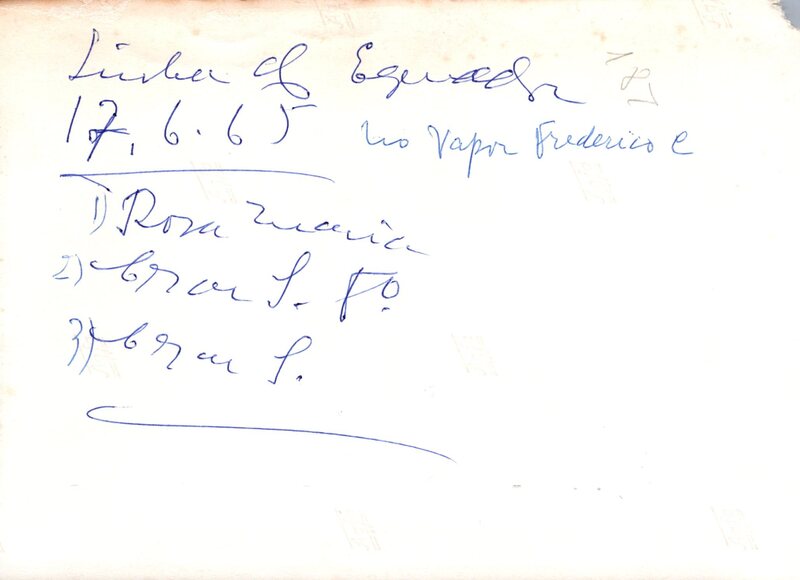 Linha do Equador
17.6.65 no Vapor Frederico C
1) Rosa Maria
2) Cezar S. Fº.
3) Cezar S.